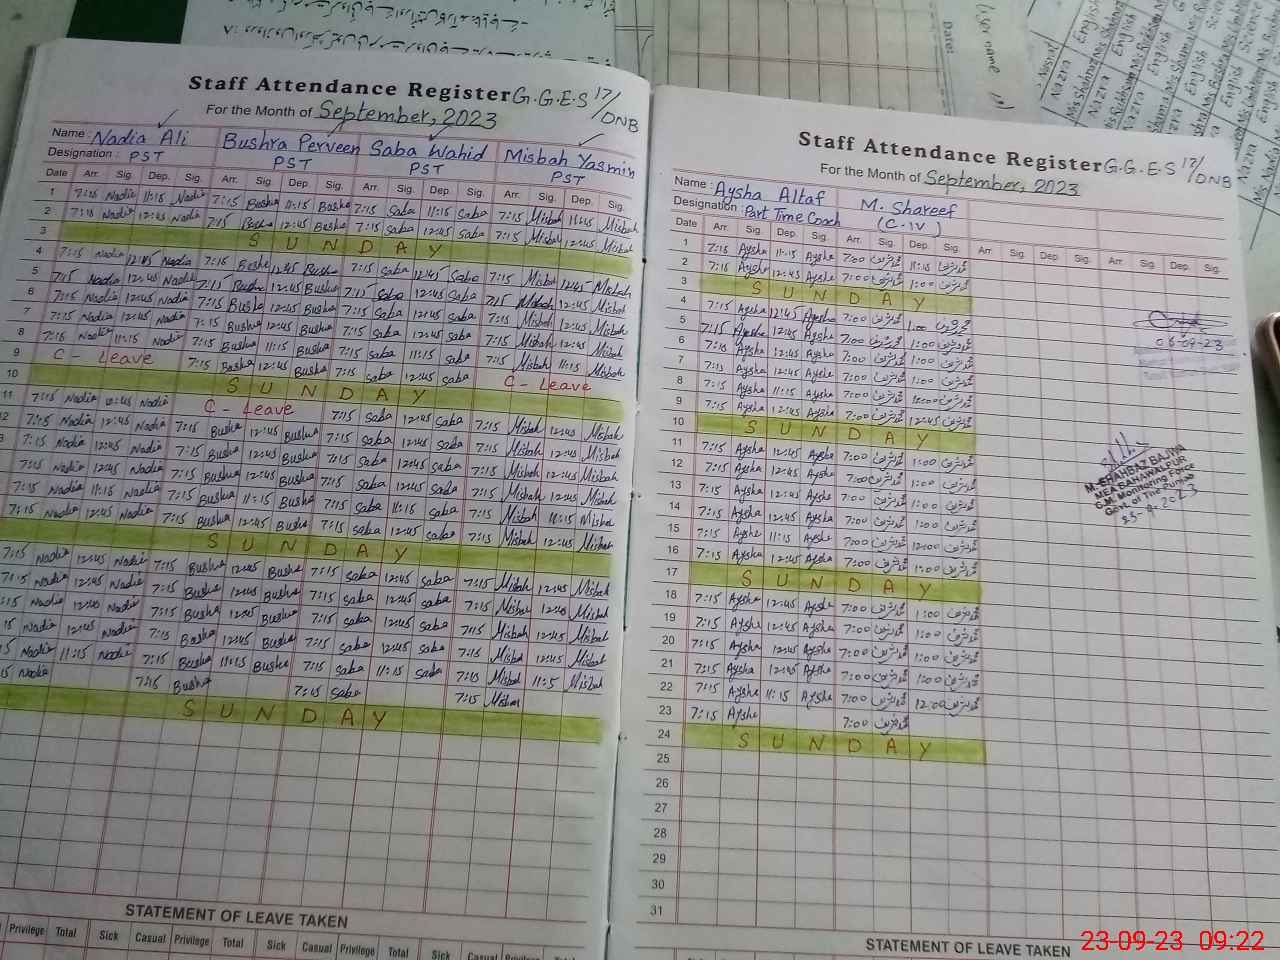 Staff Attendance Register G.G.E.S 17/DNB
For the Month of September, 2023
Name : Nadia Ali Bushra Perveen Saba Wahid Misbah Yasmin
Designation : PST PST PST PST
Date Arr. Sig. Dep. Sig. Arr. Sig. Dep. Sig. Arr. Sig. Dep. Sig. Arr. Sig. Dep. Sig.
1 7:15 Nadia 11:15 Nadia 7:15 Bushra 11:15 Bushra 7:15 Saba 11:15 Saba 7:15 Misbah 11:15 Misbah
2 7:15 Nadia 12:45 Nadia 7:15 Bushra 12:45 Bushra 7:15 Saba 12:45 Saba 7:15 Misbah 12:45 Misbah
3 SUNDAY
4 7:15 Nadia 12:45 Nadia 7:15 Bushra 12:45 Bushra 7:15 Saba 12:45 Saba 7:15 Misbah 12:45 Misbah
5 7:15 Nadia 12:45 Nadia 7:15 Bushra 12:45 Bushra 7:15 Saba 12:45 Saba 7:15 Misbah 12:45 Misbah
6 7:15 Nadia 12:45 Nadia 7:15 Bushra 12:45 Bushra 7:15 Saba 12:45 Saba 7:15 Misbah 12:45 Misbah
7 7:15 Nadia 12:45 Nadia 7:15 Bushra 12:45 Bushra 7:15 Saba 12:45 Saba 7:15 Misbah 12:45 Misbah
8 7:15 Nadia 11:15 Nadia 7:15 Bushra 11:15 Bushra 7:15 Saba 11:15 Saba 7:15 Misbah 11:15 Misbah
9 C - Leave 7:15 Bushra 12:45 Bushra 7:15 Saba 12:45 Saba C - Leave
10 SUNDAY
11 7:15 Nadia 12:45 Nadia C - Leave 7:15 Saba 12:45 Saba 7:15 Misbah 12:45 Misbah
12 7:15 Nadia 12:45 Nadia 7:15 Bushra 12:45 Bushra 7:15 Saba 12:45 Saba 7:15 Misbah 12:45 Misbah
7:15 Nadia 12:45 Nadia 7:15 Bushra 12:45 Bushra 7:15 Saba 12:45 Saba 7:15 Misbah 12:45 Misbah
7:15 Nadia 12:45 Nadia 7:15 Bushra 12:45 Bushra 7:15 Saba 12:45 Saba 7:15 Misbah 12:45 Misbah
7:15 Nadia 11:15 Nadia 7:15 Bushra 11:15 Bushra 7:15 Saba 11:15 Saba 7:15 Misbah 11:15 Misbah
7:15 Nadia 12:45 Nadia 7:15 Bushra 12:45 Bushra 7:15 Saba 12:45 Saba 7:15 Misbah 12:45 Misbah
SUNDAY
7:15 Nadia 12:45 Nadia 7:15 Bushra 12:45 Bushra 7:15 Saba 12:45 Saba 7:15 Misbah 12:45 Misbah
7:15 Nadia 12:45 Nadia 7:15 Bushra 12:45 Bushra 7:15 Saba 12:45 Saba 7:15 Misbah 12:45 Misbah
:15 Nadia 12:45 Nadia 7:15 Bushra 12:45 Bushra 7:15 Saba 12:45 Saba 7:15 Misbah 12:45 Misbah
15 Nadia 12:45 Nadia 7:15 Bushra 12:45 Bushra 7:15 Saba 12:45 Saba 7:15 Misbah 12:45 Misbah
15 Nadia 11:15 Nadia 7:15 Bushra 11:15 Bushra 7:15 Saba 11:15 Saba 7:15 Misbah 11:5 Misbah
15 Nadia 7:15 Bushra 7:15 Saba 7:15 Misbah
SUNDAY
STATEMENT OF LEAVE TAKEN
Privilege Total Sick Casual Privilege Total Sick Casual Privilege Total Sick Casual Privilege Total
Staff Attendance Register G.G.E.S 17/DNB
For the Month of September, 2023
Name : Aysha Altaf M. Shareef
Designation : Part Time Coach (C-IV)
Date Arr. Sig. Dep. Sig. Arr. Sig. Dep. Sig. Arr. Sig. Dep. Sig. Arr. Sig. Dep. Sig.
1 7:15 Aysha 11:15 Aysha 7:00 محمد شریف 11:15 محمد شریف
2 7:15 Aysha 12:45 Aysha 7:00 محمد شریف 1:00 محمد شریف
3 SUNDAY
4 7:15 Aysha 12:45 Aysha 7:00 محمد شریف 1:00 محمد شریف
5 7:15 Aysha 12:45 Aysha 7:00 محمد شریف 1:00 محمد شریف
6 7:15 Aysha 12:45 Aysha 7:00 محمد شریف 1:00 محمد شریف
7 7:15 Aysha 12:45 Aysha 7:00 محمد شریف 1:00 محمد شریف
8 7:15 Aysha 11:15 Aysha 7:00 محمد شریف محمد شریف
9 7:15 Aysha 12:45 Aysha 7:00 محمد شریف 12:45 محمد شریف
10 SUNDAY
11 7:15 Aysha 12:45 Aysha 7:00 محمد شریف 1:00 محمد شریف
12 7:15 Aysha 12:45 Aysha 7:00 محمد شریف 1:00 محمد شریف
13 7:15 Aysha 12:45 Aysha 7:00 محمد شریف 1:00 محمد شریف
14 7:15 Aysha 12:45 Aysha 7:00 محمد شریف 1:00 محمد شریف
15 7:15 Aysha 11:15 Aysha 7:00 محمد شریف 12:00 محمد شریف
16 7:15 Aysha 12:45 Aysha 7:00 محمد شریف 1:00 محمد شریف
17 SUNDAY
18 7:15 Aysha 12:45 Aysha 7:00 محمد شریف 1:00 محمد شریف
19 7:15 Aysha 12:45 Aysha 7:00 محمد شریف 1:00 محمد شریف
20 7:15 Aysha 12:45 Aysha 7:00 محمد شریف 1:00 محمد شریف
21 7:15 Aysha 12:45 Aysha 7:00 محمد شریف 1:00 محمد شریف
22 7:15 Aysha 11:15 Aysha 7:00 محمد شریف 12:00 محمد شریف
23 7:15 Aysha 7:00 محمد شریف
24 SUNDAY
25
26
27
28
29
30
31
06-09-23
M. SHAHBAZ BAJWA
MEA BAHAWALPUR
C.M. Monitoring Force
Govt. of The Punjab
STATEMENT OF LEAVE TAKEN
Date:
23-09-23 09:22